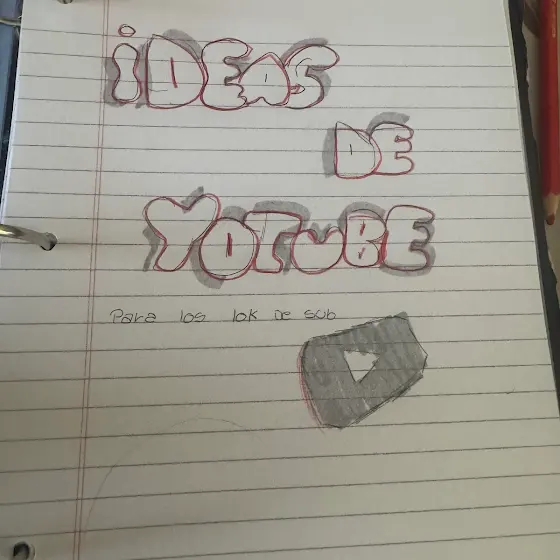 iDEAS
DE
YOTUBE
Para los 10K de sub